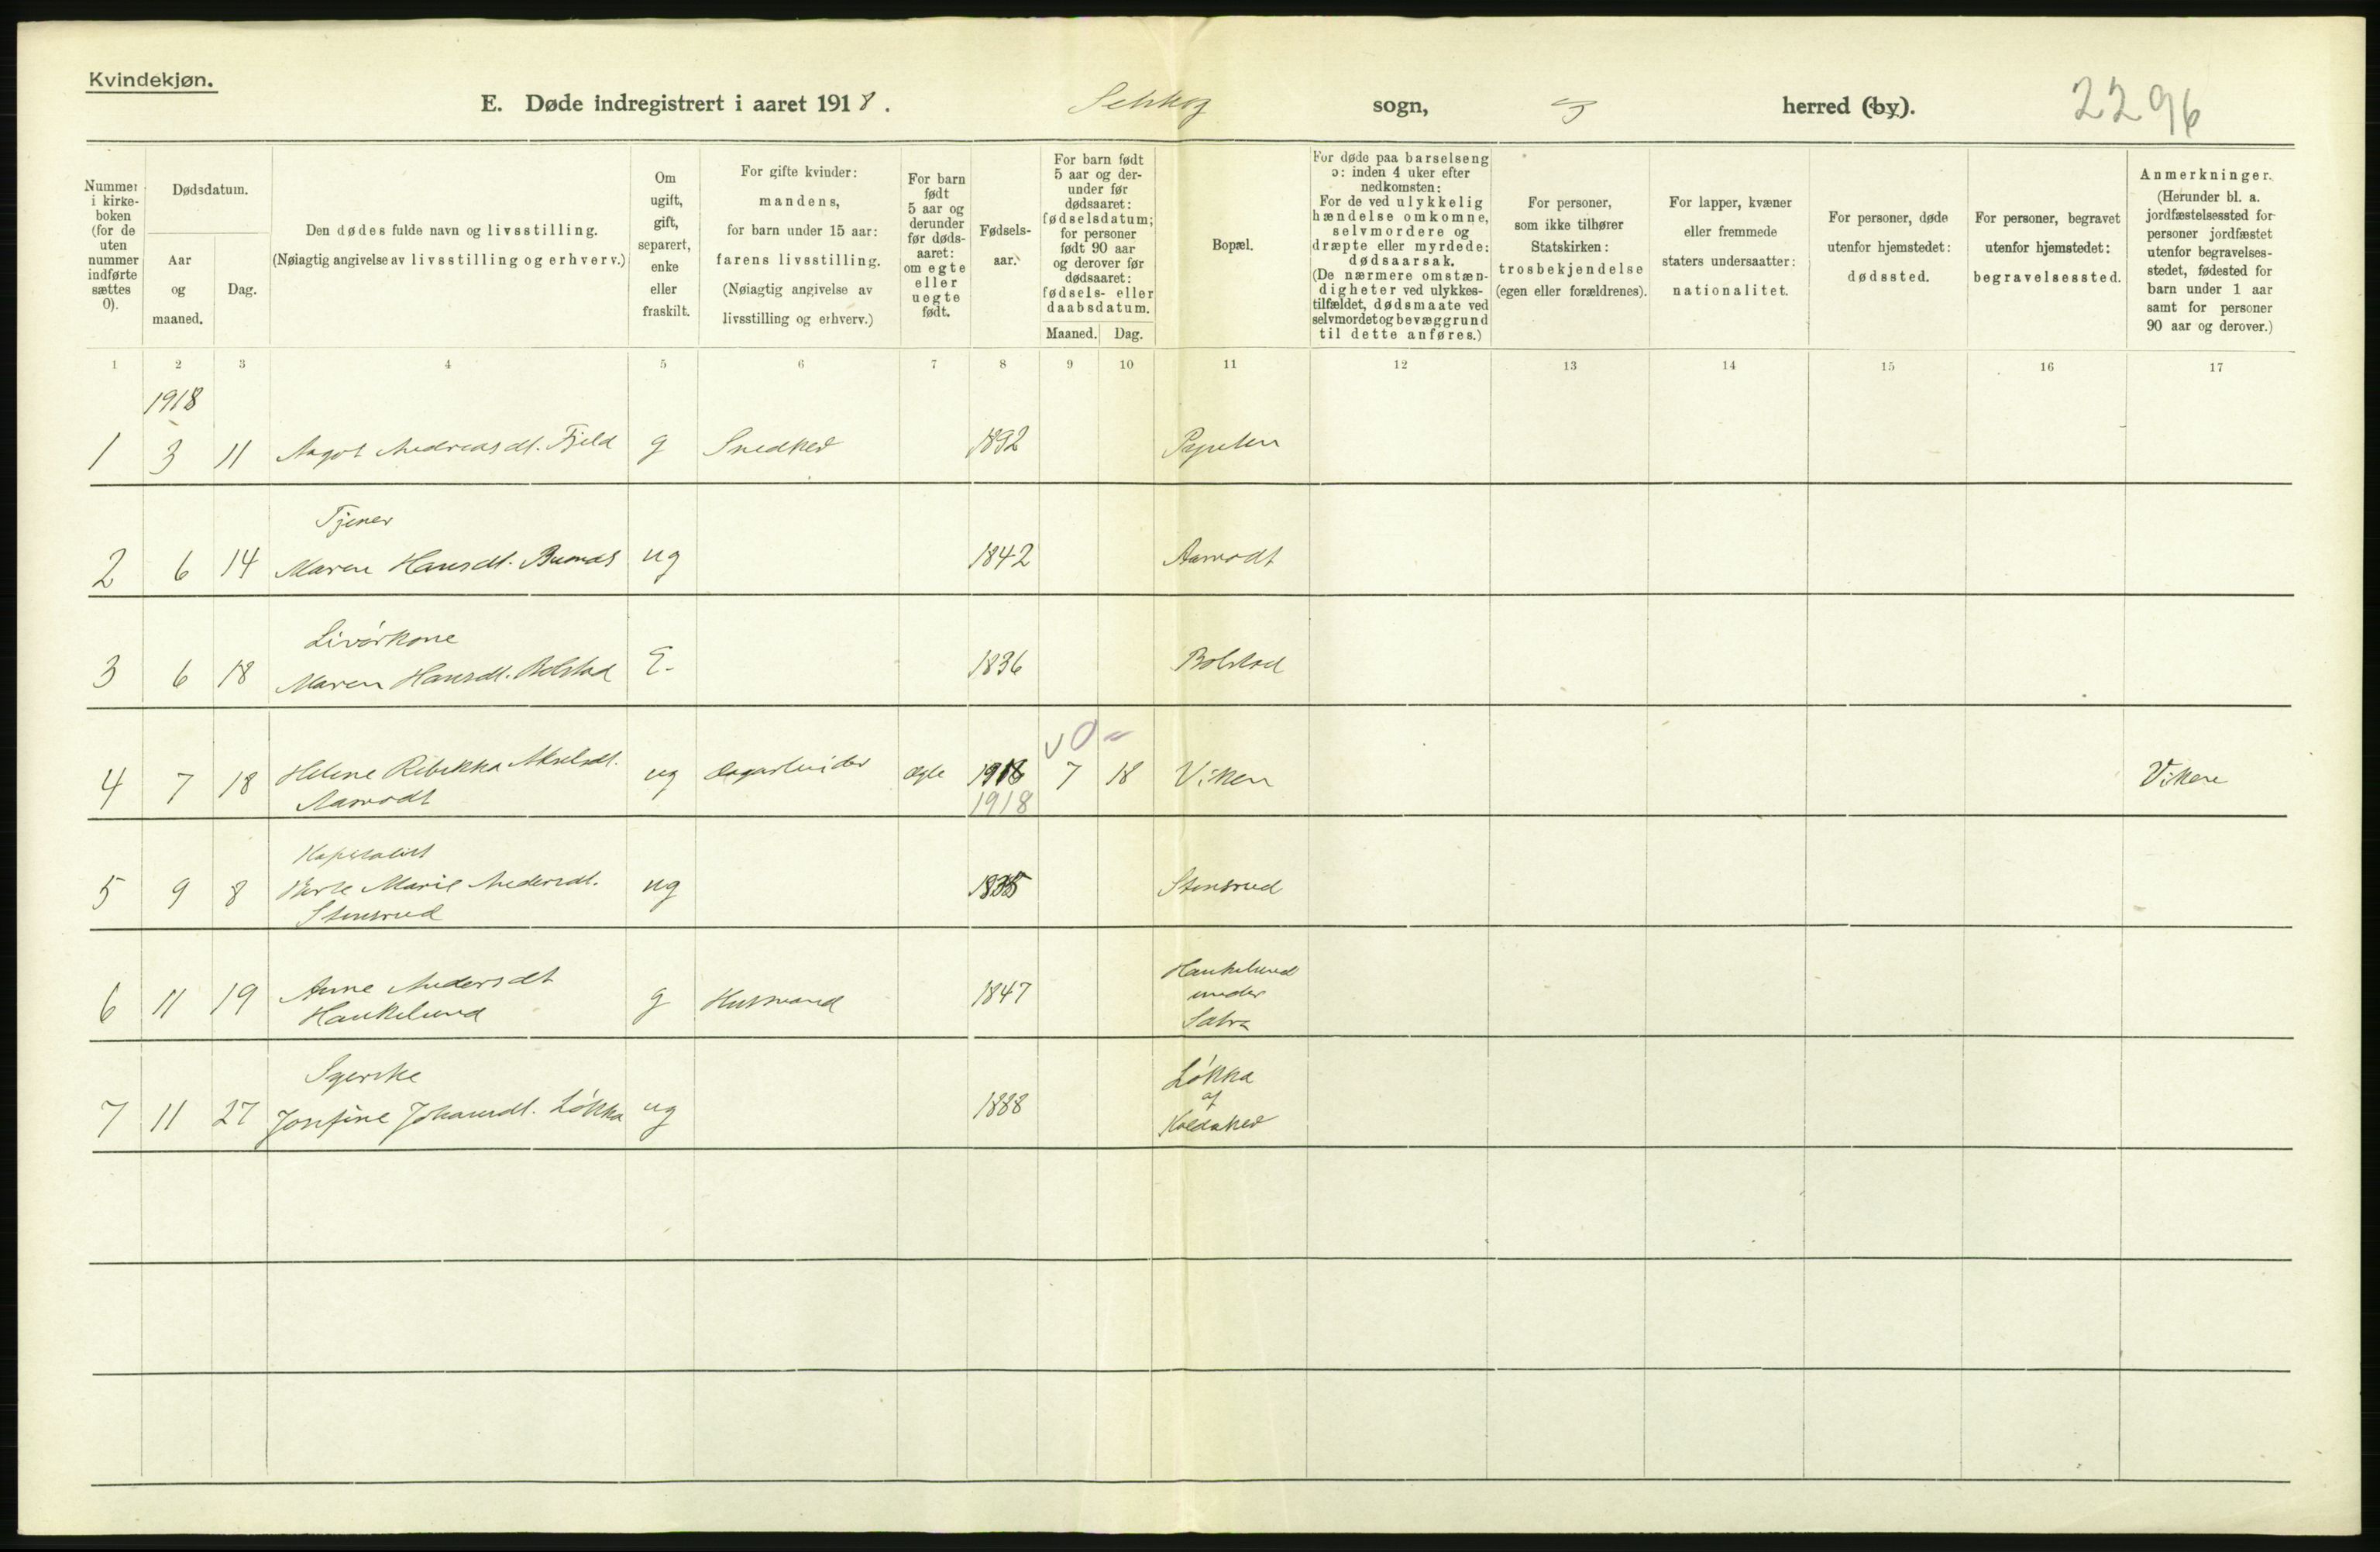 Kvindekjøn.
E. Døde indregistrert i aaret 1918. sogn, herred (by).
2296
Nummer i kirkeboken (for de uten nummer indførte sættes 0).
Dødsdatum.
Aar og maaned.
Dag.
Den dødes fulde navn og livsstilling.
(Nøiagtig angivelse av livsstilling og erhverv.)
Om ugift, gift, separert, enke eller fraskilt.
For gifte kvinder:
mandens,
for barn under 15 aar:
farens livsstilling.
(Nøiagtig angivelse av
livsstilling og erhverv.)
For barn født 5 aar og derunder før dødsaaret: om egte eller uegte født.
Fødselsaar.
For barn født 5 aar og derunder før dødsaaret: fødselsdatum; for personer født 90 aar og derover før dødsaaret: fødsels- eller daabsdatum.
Maaned. Dag.
Bopæl.
For døde paa barselseng
ɔ: inden 4 uker efter
nedkomsten:
For de ved ulykkelig
hændelse omkomne,
selvmordere og
dræpte eller myrdede:
dødsaarsak.
(De nærmere omstæn-
digheter ved ulykkes-
tilfældet, dødsmaate ved
selvmordet og bevæggrund
til dette anføres.)
For personer,
som ikke tilhører
Statskirken:
trosbekjendelse
(egen eller forældrenes).
For lapper, kvæner
eller fremmede
staters undersaatter:
nationalitet.
For personer, døde
utenfor hjemstedet:
dødssted.
For personer, begravet
utenfor hjemstedet:
begravelsessted.
Anmerkninger.
(Herunder bl. a.
jordfæstelsessted for
personer jordfæstet
utenfor begravelses-
stedet, fødested for
barn under 1 aar
samt for personer
90 aar og derover.)
1 2 3 4 5 6 7 8 9 10 11 12 13 14 15 16 17
1918
1 3 11 Aagot Andreasdt. Fjeld g Snedker 1892
Tjener
2 6 14 Maren Hansdt. ug 1842 Aamodt
Livörkone
3 6 18 Maren Hansdt. Bolstad E. 1836 Bolstad
4 7 18 Helene Rebekka Akselsdt. ug Dagarbeider Egte 1918 7 18 Viken Viken
Aamodt 1918
Kapitalist
5 9 8 Berte Marie Andersdt. ug 1835 Stensrud
Stensrud
6 11 19 Anne Andersdt g Husmand 1847 Haukelund
Haukelund under
Syerske
7 11 27 Josefine Johansdt. Løkka ug 1888 Løkka
af